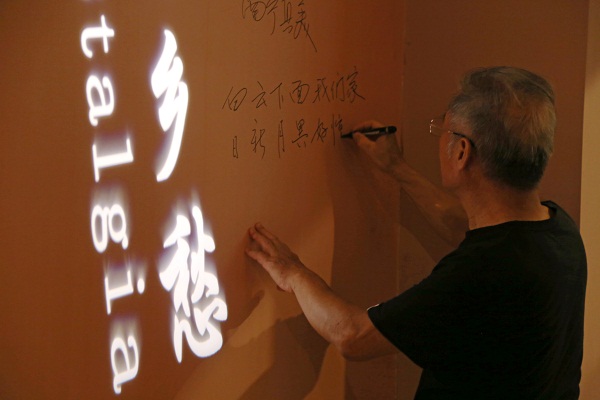 talgia
乡愁
宁县美
白云下面我们家
日新月异好